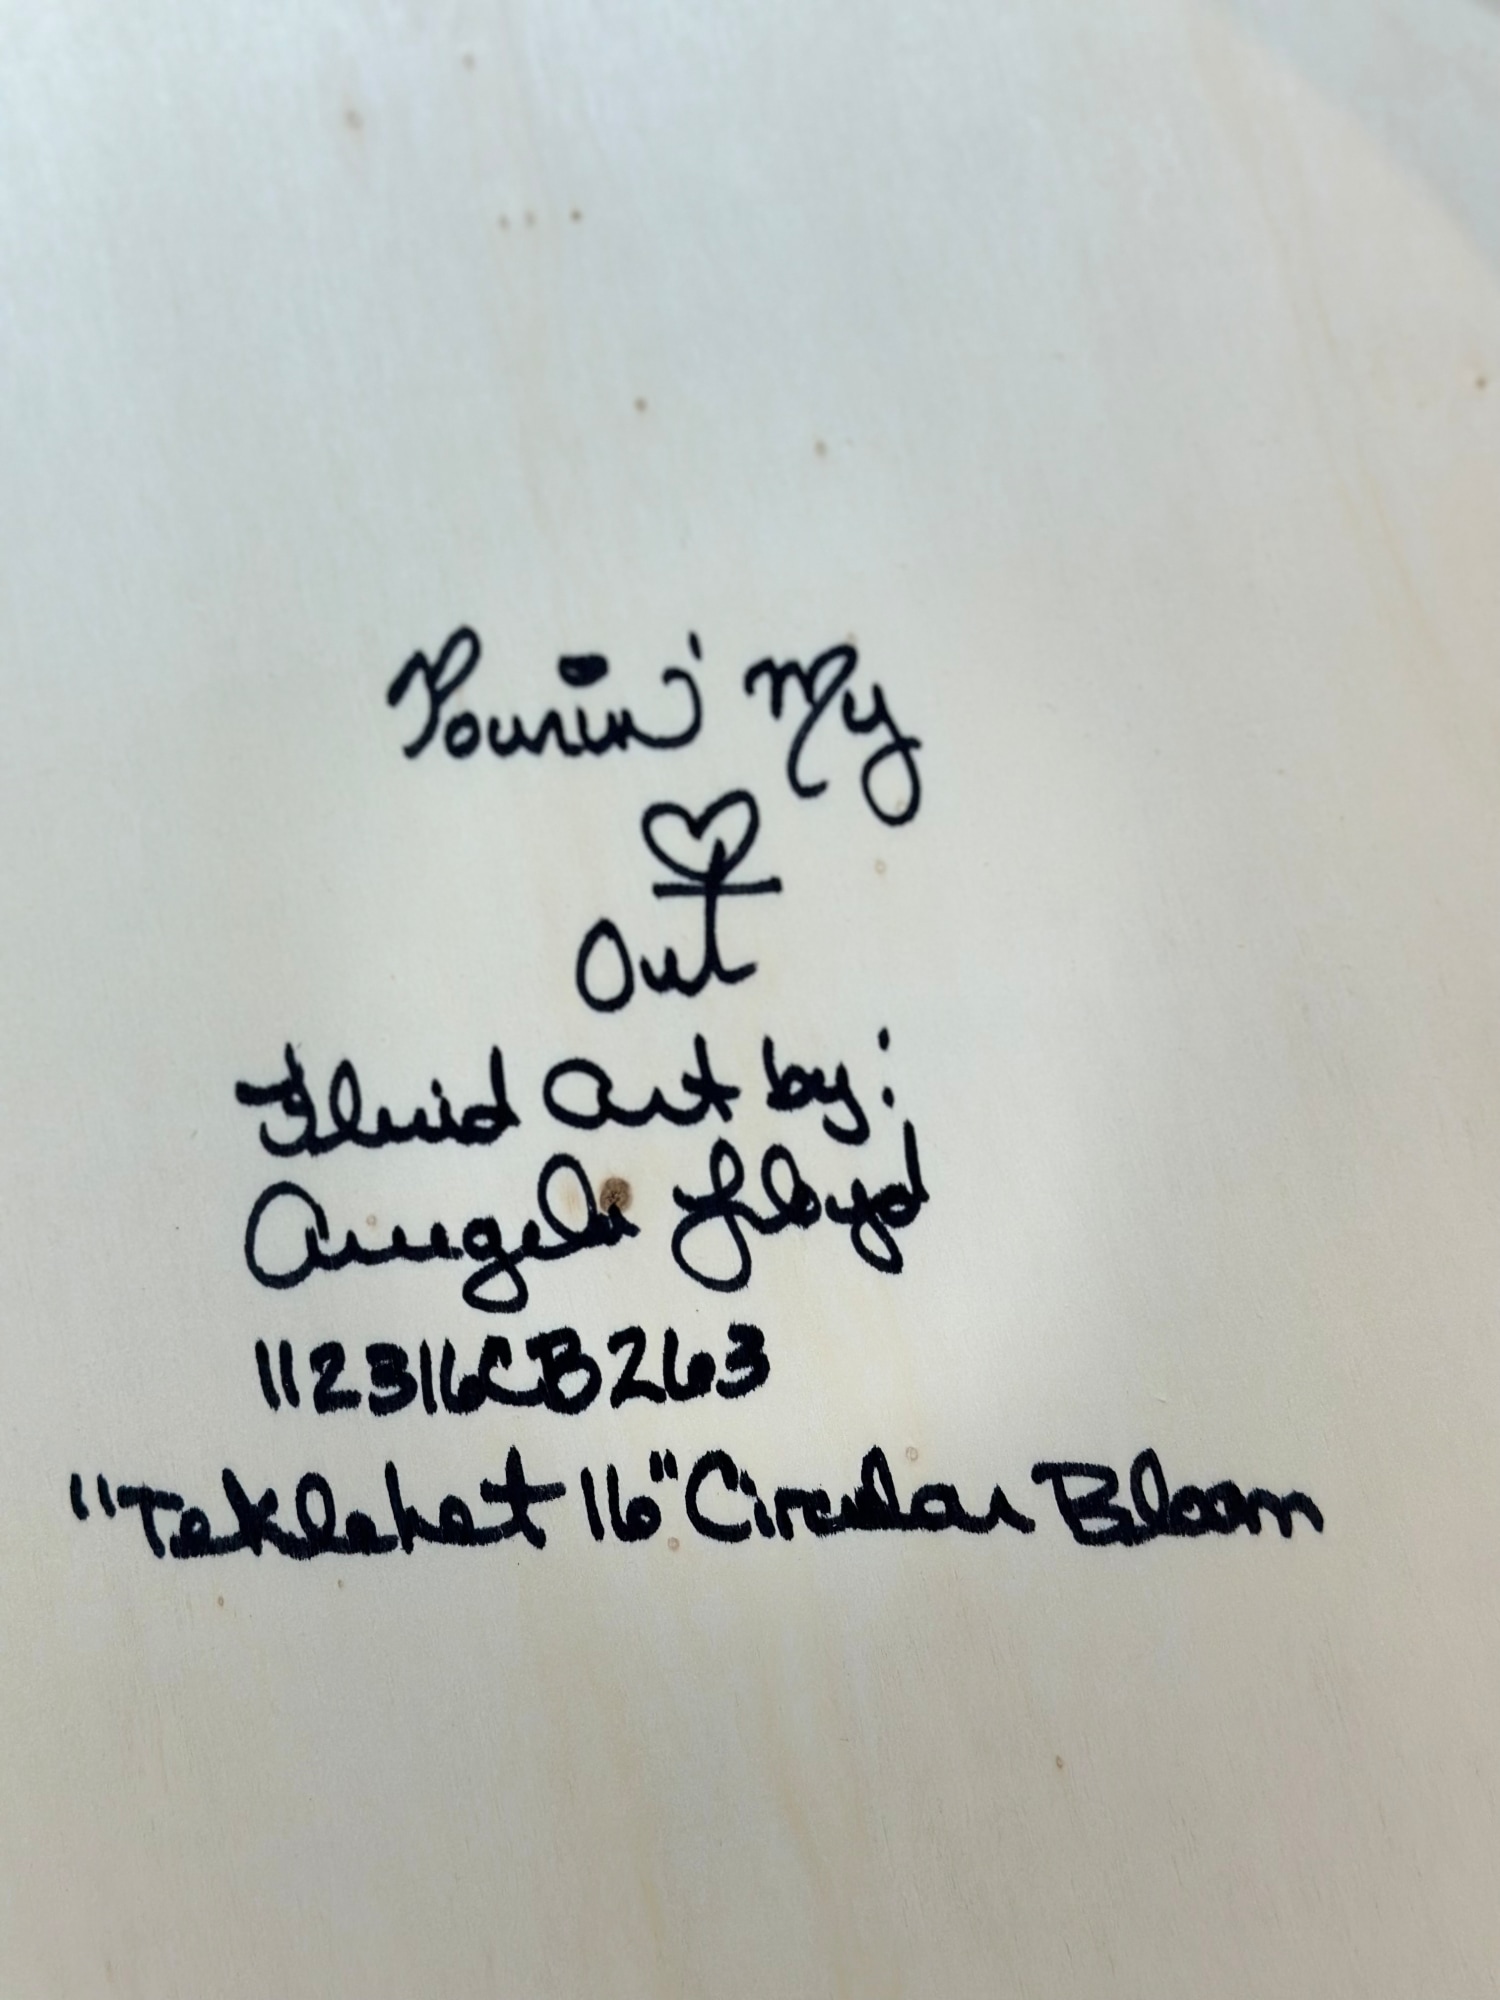 Pourin' My
♡
Out
Fluid Art by:
Angela Lloyd
112316CB263
"Teklehet 16" Circular Bloom